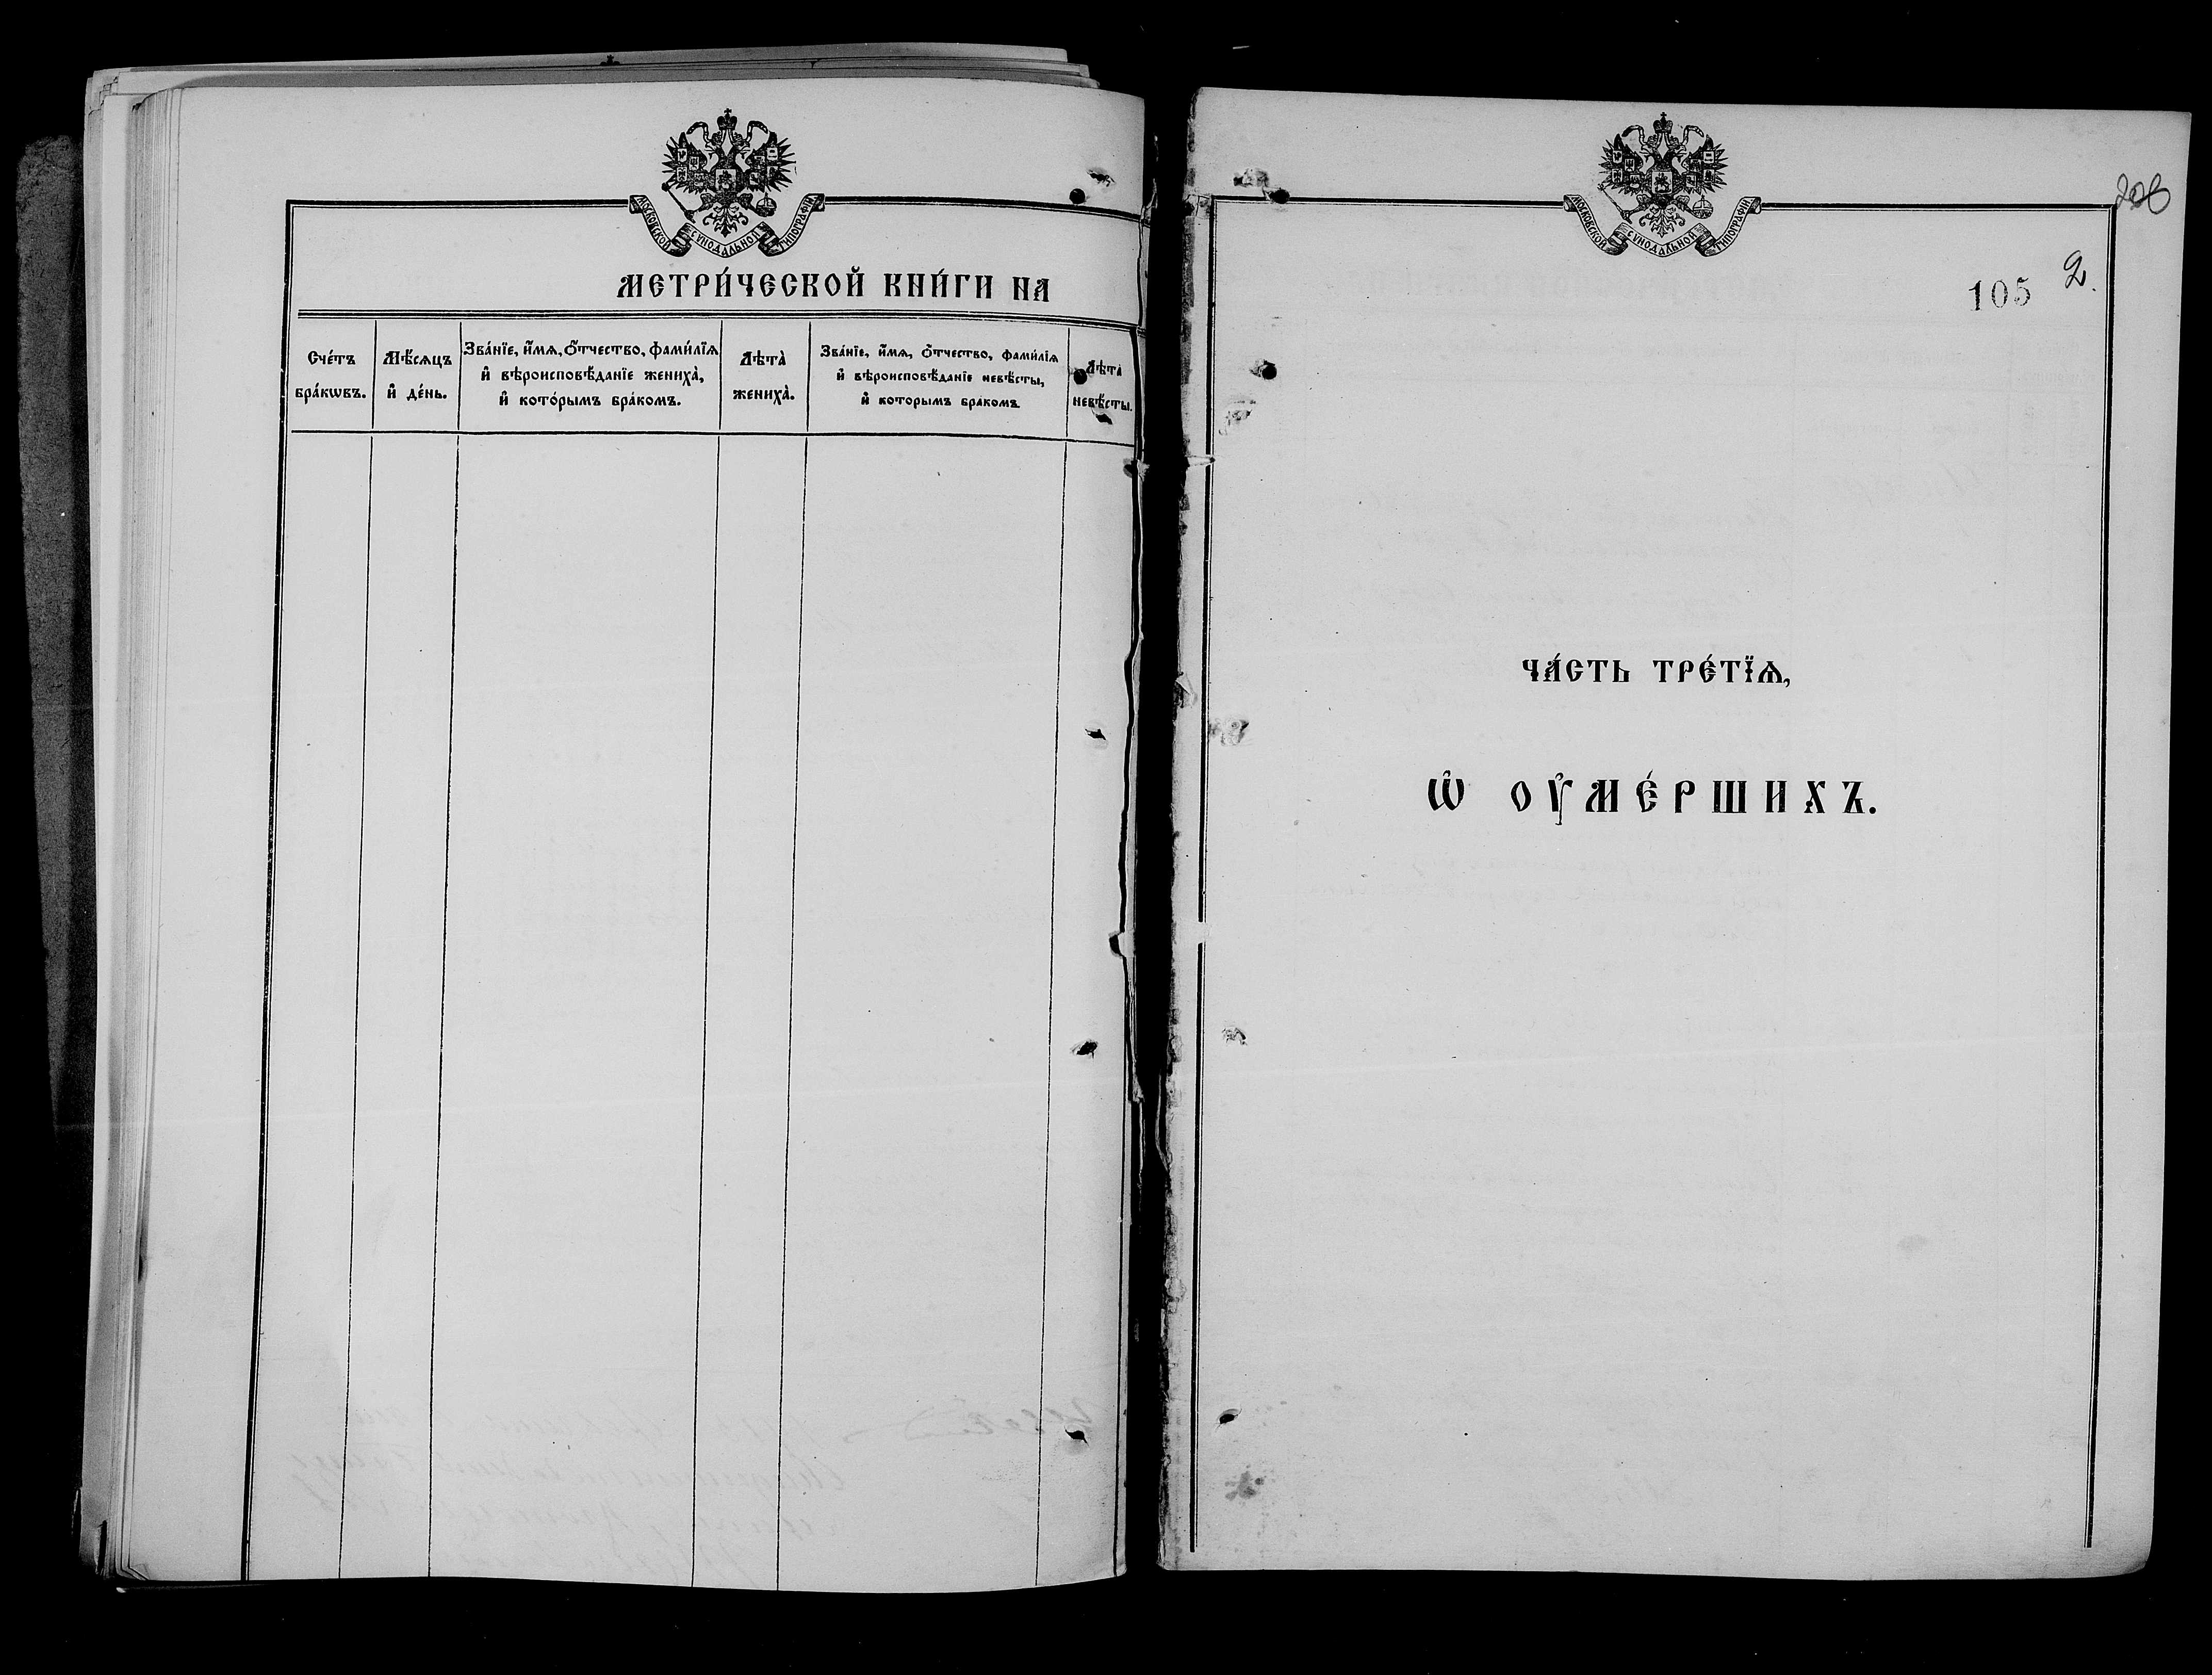 МОСКОВСКОЙ СѴНОДАЛЬНОЙ ТИПОГРАФІИ
МЕТРИ́ЧЕСКОЙ КНИ́ГИ НА
Сче́тъ бра́кѡвъ.
Мѣ́сяцъ и҆ де́нь.
Зва́нїе, и҆́мѧ, ѻ҆́тчество, фами́лїѧ
и҆ вѣроисповѣ́данїе жениха̀,
и҆ кото́рымъ бра́комъ.
Лѣ́та жениха̀.
Зва́нїе, и҆́мѧ, ѻ҆́тчество, фами́лїѧ
и҆ вѣроисповѣ́данїе невѣ́сты,
и҆ кото́рымъ бра́комъ
Лѣ́та невѣ́сты.
МОСКОВСКОЙ СѴНОДАЛЬНОЙ ТИПОГРАФІИ
105
2.
ЧА́СТЬ ТРЕ́ТЇѦ,
Ѡ҆ ОУ҆МЕ́РШИХЪ.